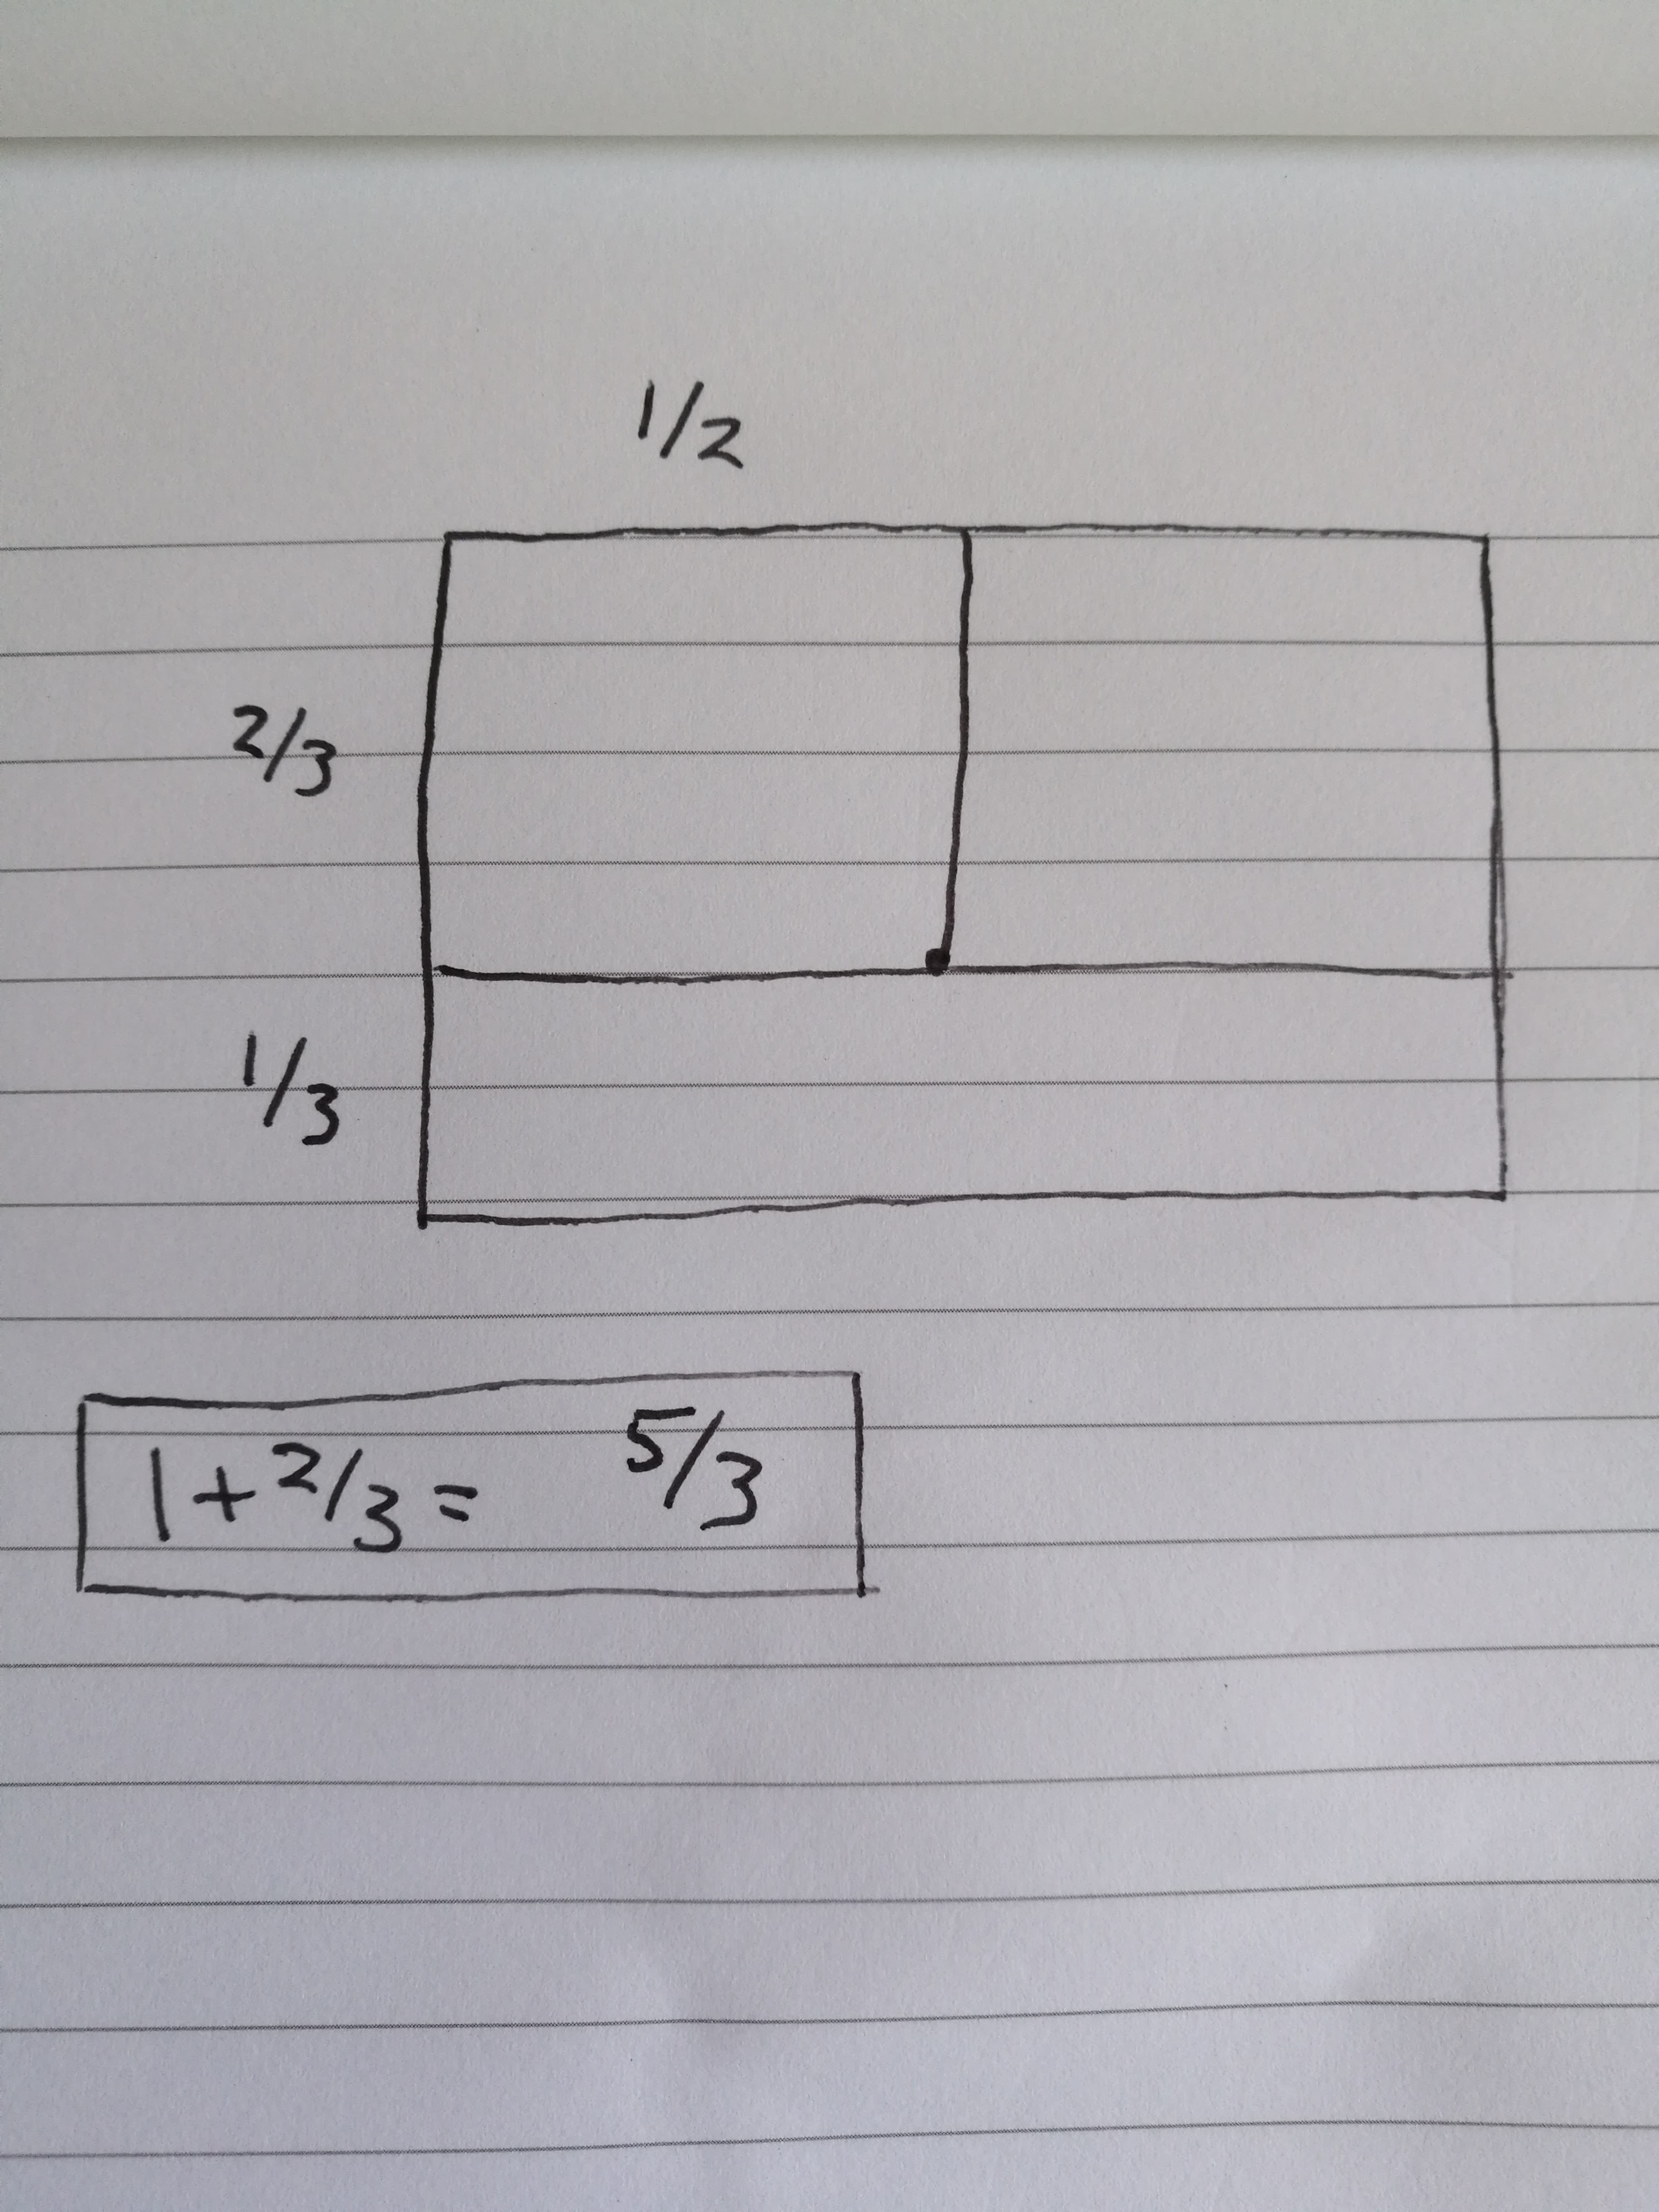 1/2
2/3
1/3
1+2/3= 5/3